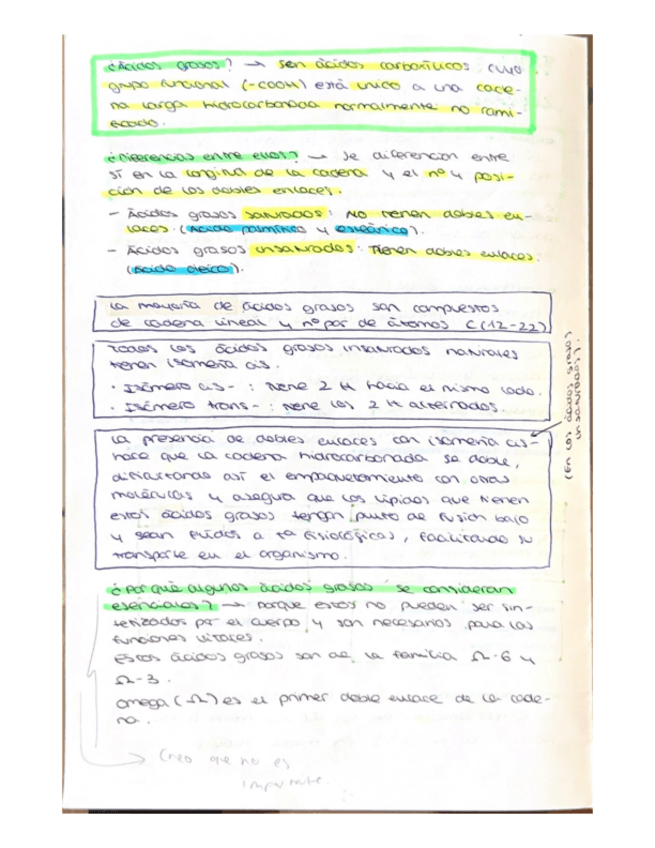 ¿Ácidos grasos? → Son ácidos carboxílicos cuyo
grupo funcional (-COOH) está unico a una cade-
na larga hidrocarbonada normalmente no rami-
ficado.
¿Diferencias entre ellos? → Se diferencian entre
sí en la longitud de la cadena y el nº y posi-
ción de los dobles enlaces.
- Ácidos grasos saturados: No tienen dobles en-
laces. (Ácido palmítico y esteárico).
- Ácidos grasos insaturados: Tienen dobles enlaces.
(Ácido oleico).
La mayoría de ácidos grasos son compuestos
de cadena lineal y nº par de átomos C (12-22)
Todos los ácidos grasos insaturados naturales
tienen isomería cis.
· Isómero cis- : Tiene 2 H hacia el mismo lado.
· Isómero trans- : Tiene los 2 H alternados.
(En los ácidos grasos
insaturados).
La presencia de dobles enlaces con isomería cis-
hace que la cadena hidrocarbonada se doble,
dificultando así el empaquetamiento con otras
moléculas y asegura que los lípidos que tienen
estos ácidos grasos tengan punto de fusión bajo
y sean fluidos a tª fisiológicas, facilitando su
transporte en el organismo.
¿Por qué algunos ácidos grasos se consideran
esenciales? → Porque estos no pueden ser sin-
tetizados por el cuerpo y son necesarios para las
funciones vitales.
Estos ácidos grasos son de la familia Ω-6 y
Ω-3.
Omega (Ω) es el primer doble enlace de la cade-
na.
Creo que no es
importante.